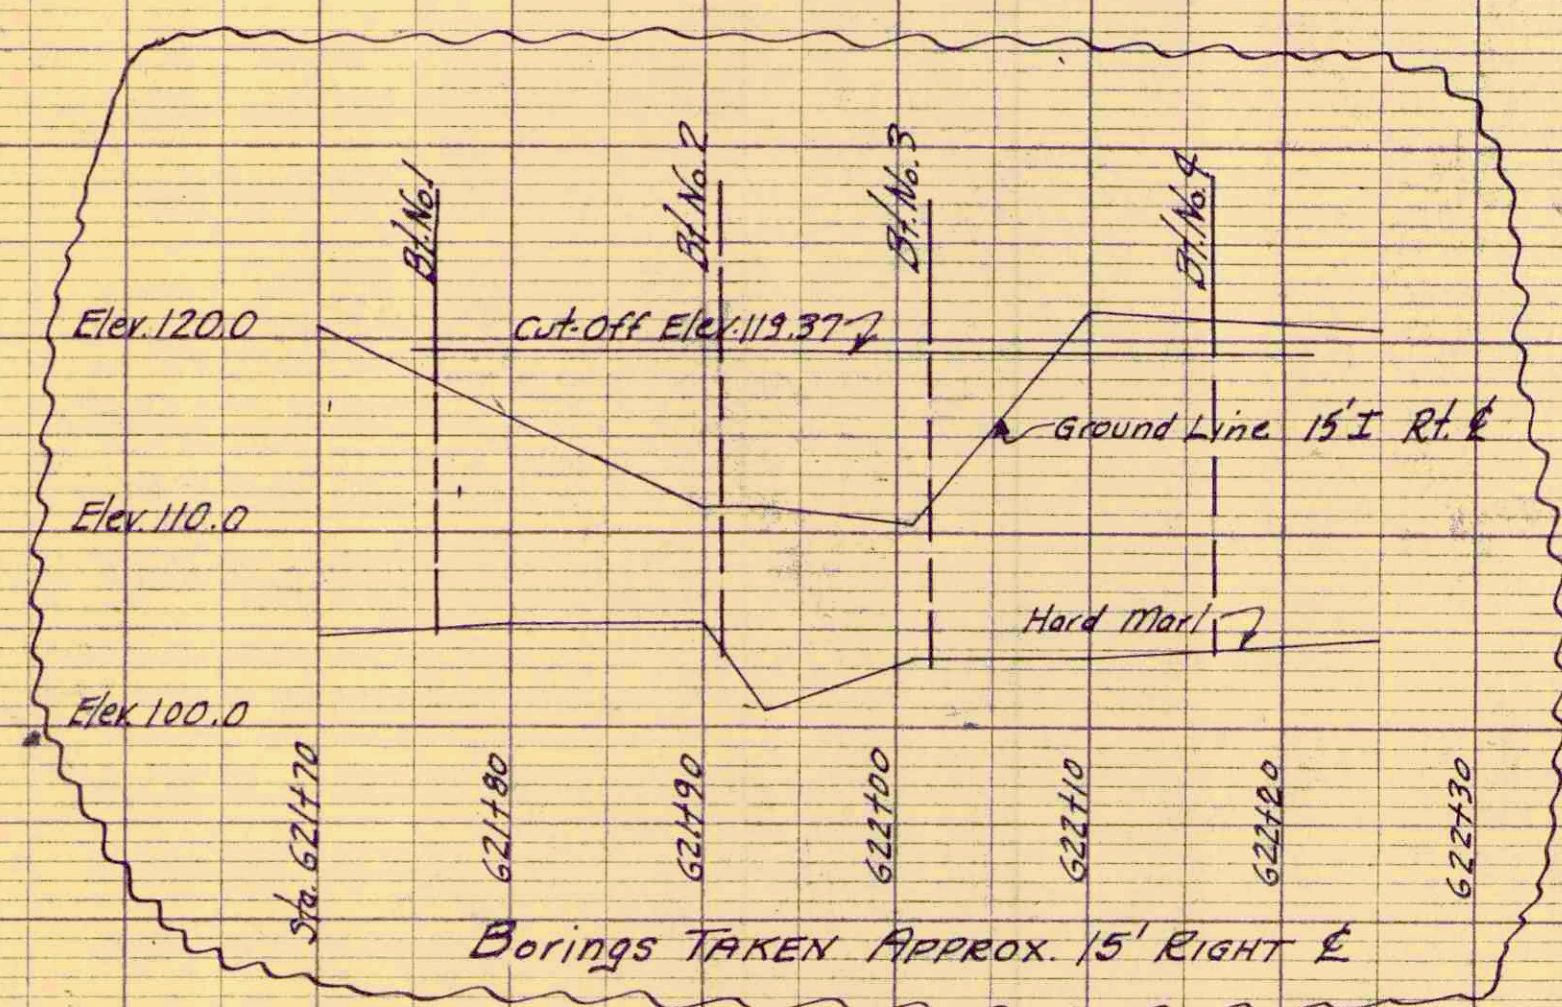 Bt. No. 1
Bt. No. 2
Bt. No. 3
Bt. No. 4
Elev. 120.0
Cut-Off Elev. 119.37
Ground Line 15' I Rt. ℄
Elev. 110.0
Hard Marl
Elev. 100.0
Sta. 621+70
621+80
621+90
622+00
622+10
622+20
622+30
Borings TAKEN APPROX. 15' RIGHT ℄